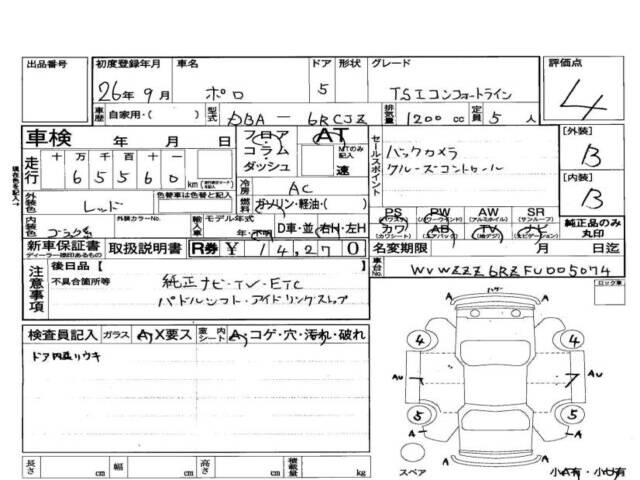 出品番号 初度登録年月 車名 ドア 形状 グレード 評価点
26年 9月 ポロ 5 TSIコンフォートライン 4
車歴 自家用・( ) 型式 DBA-6RCJZ 排気量 1200cc 定員 5人
車検 年 月 日 フロア AT セールスポイント [外装]
コラム MTのみ記入 バックカメラ B
走行 十万千百十一 ダッシュ 速 クルーズコントロール
65560 km [内装]
冷房 AC B
外装色 レッド 色替車は色替と記入 燃料 ガソリン・軽油・( )
PS PW AW SR
(パワステ) (パワーウィンドー) (アルミホイル) (サンルーフ)
内装色 外装カラーNo. 輸入車 モデル年式 カワ AB TV ナビ 純正品のみ丸印
年・不明 D車・並 右H・左H (カワシート) (エアバッグ)
新車保証書 取扱説明書 R券 ¥14,270 名変期限 月 日迄
ディーラー捺印あるもの
注意事項 後日品【 車台No. WVWZZZ6RZFU005074
不具合箇所等 純正ナビ・TV・ETC
パドルシフト・アイドリングストップ
ロック車
検査員記入 ガラス A X要ス 室内シート A コゲ・穴・汚れ・破れ
4 4
AU AU
5 5
A A
スペア
長さ cm 幅 cm 高さ cm 積載量 kg